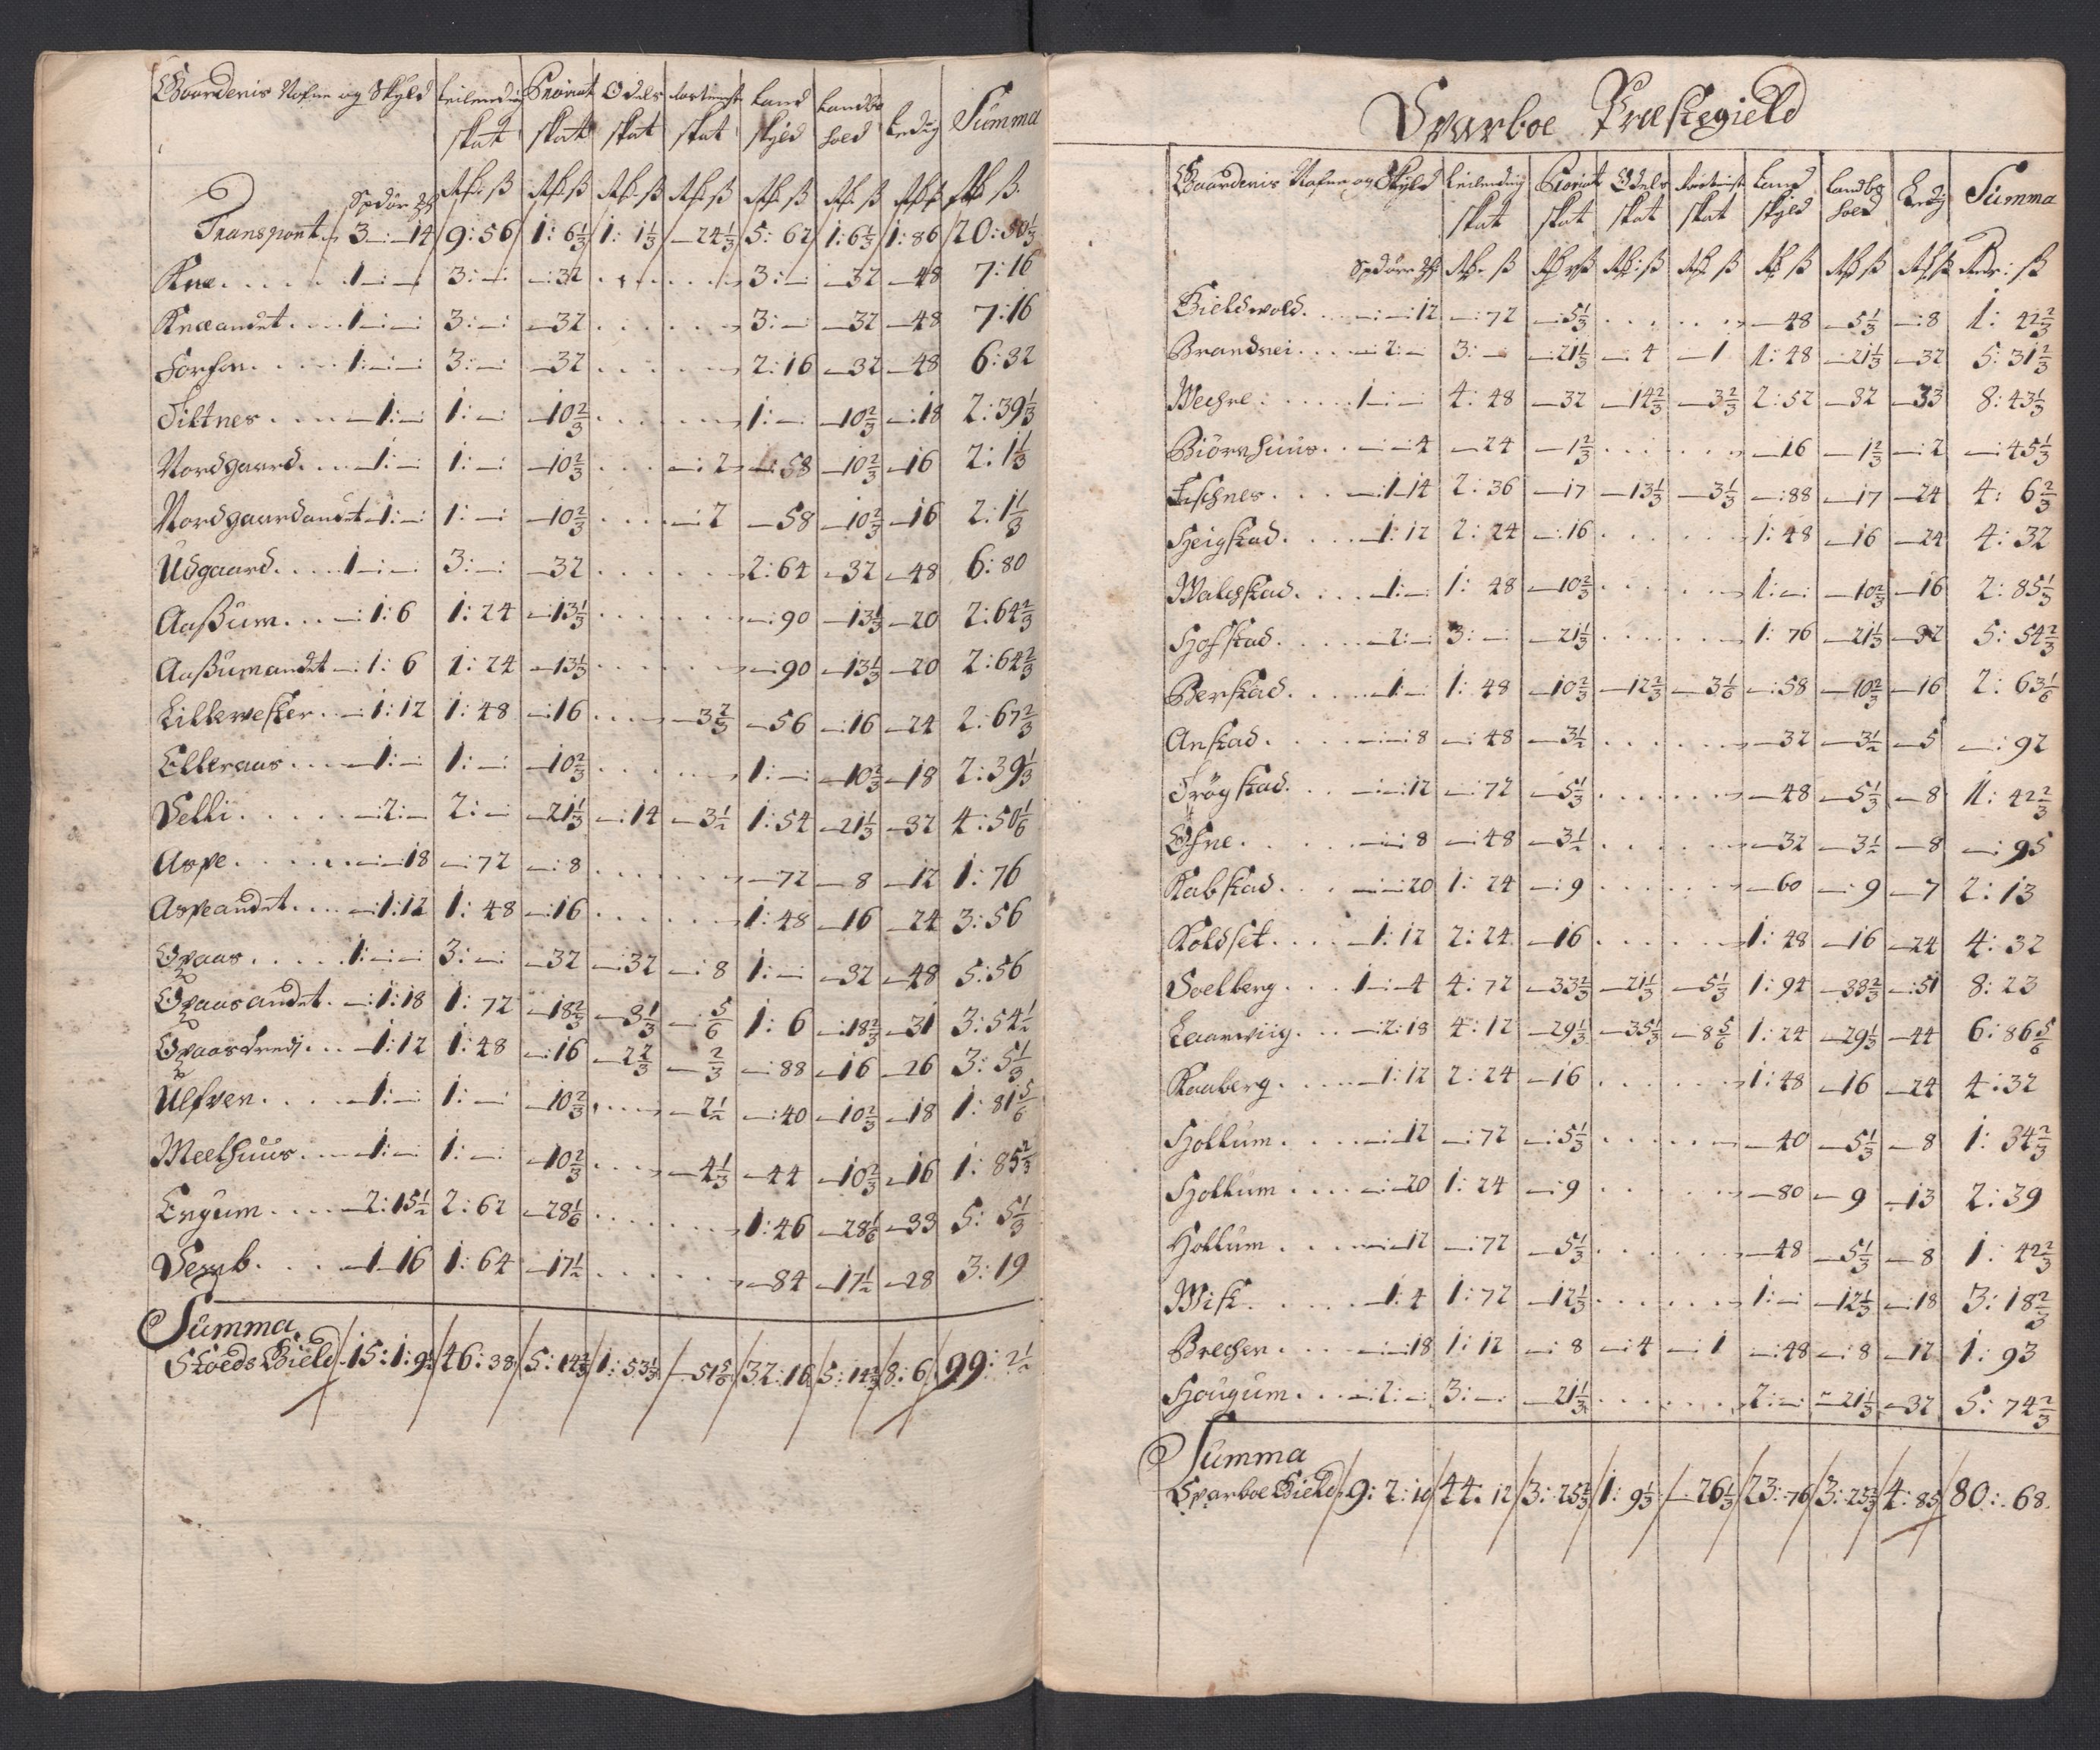 Gaardenis Nafne og Skyld | Leilending skat | Proviat skat | Odels skat | skat | Land skyld | Landbo hold | Leding | Summa
Transport 3 — 14 | 9: 56 | 1: 6⅓ | 1: 1⅓ | — 24⅓ | 5: 62 | 1: 6⅓ | 1: 86 | 20: 50⅓
Kne . . . 1 — — | 3: — | — 32 | . . . | . . . | 3: — | — 32 | — 48 | 7: 16
Kneandet . . . 1 — — | 3: — | — 32 | . . . | . . . | 3: — | — 32 | — 48 | 7: 16
Forfor . . . 1: — — | 3: — | — 32 | . . . | . . . | 2: 16 | — 32 | — 48 | 6: 32
Tiltnes . . . — 1: — | 1: — | — 10⅔ | . . . | . . . | 1: — | — 10⅔ | — 18 | 2: 39⅓
Nordgaard . . . — 1: — | 1: — | — 10⅔ | . . . | — 2 | — 58 | — 10⅔ | — 16 | 2: 1⅓
Nordgaardandet — 1: — | 1: — | — 10⅔ | . . . | — 2 | — 58 | — 10⅔ | — 16 | 2: 1⅓
Udgaard . . . 1 — — | 3: — | — 32 | . . . | . . . | 2: 64 | — 32 | — 48 | 6: 80
Aaßum . . . — 1: 6 | 1: 24 | — 13⅓ | . . . | . . . | — 90 | — 13⅓ | — 20 | 2: 64⅔
Aaßumandet — 1: 6 | 1: 24 | — 13⅓ | . . . | . . . | — 90 | — 13⅓ | — 20 | 2: 64⅔
Lillevester . . — 1: 12 | 1: 48 | — 16 | . . . | — 3⅔ | — 56 | — 16 | — 24 | 2: 67⅔
Elleraas . . . — 1: — | 1: — | — 10⅔ | . . . | . . . | 1: — | — 10⅔ | — 18 | 2: 39⅓
Velli . . . — 2: — | 2: — | — 21⅓ | — 14 | — 3½ | 1: 54 | — 21⅓ | — 32 | 4: 50⅙
Aspe . . . — — 18 | — 72 | — 8 | . . . | . . . | — 72 | — 8 | — 12 | 1: 76
Aspeandet . . . — 1: 12 | 1: 48 | — 16 | . . . | . . . | 1: 48 | — 16 | — 24 | 3: 56
Opaas . . . 1: — — | 3: — | — 32 | — 32 | — 8 | 1: — | — 32 | — 48 | 5: 56
Opaasandet . — 1: 18 | 1: 72 | — 18⅔ | — 3⅓ | — ⅚ | 1: 6 | — 18⅔ | — 31 | 3: 54½
Opaastredj . . — 1: 12 | 1: 48 | — 16 | — 2⅔ | — ⅔ | — 88 | — 16 | — 26 | 3: 5⅓
Ulfven . . . — 1: — | 1: — | — 10⅔ | . . . | — 2½ | — 40 | — 10⅔ | — 18 | 1: 81⅚
Meelhuus . . . — 1: — | 1: — | — 10⅔ | . . . | — 4⅓ | — 44 | — 10⅔ | — 16 | 1: 85⅔
Engum . . . — 2: 15½ | 2: 62 | — 28⅙ | . . . | . . . | 1: 46 | — 28⅙ | — 33 | 5: 5⅓
Semb . . . — 1 16 | 1: 64 | — 17½ | . . . | . . . | — 84 | — 17½ | — 28 | 3: 19
Summa
Stoeds Gield 15: 1: 9½ | 46: 38 | 5: 14⅔ | 1: 53⅓ | — 51⅚ | 32: 16 | 5: 14⅔ | 8: 6 | 99: 2½
Sparboe Præstegield
Gaardenis Nafne og Skyld | Leilending skat | Proviat skat | Odels skat | skat | Land skyld | Landbo hold | Leding | Summa
Gieldvold . . . — — 12 | — 72 | — 5⅓ | . . . | . . . | — 48 | — 5⅓ | — 8 | 1: 42⅔
Brandsei . . . — 2: — | 3: — | — 21⅓ | — 4 | — 1 | 1: 48 | — 21⅓ | — 32 | 5: 31⅔
Wechre . . . 1 — — | 4: 48 | — 32 | — 14⅔ | — 3⅔ | 2: 52 | — 32 | — 33 | 8: 43⅓
Biörnhuus . . . — — 4 | — 24 | — 1⅔ | . . . | . . . | — 16 | — 1⅔ | — 2 | — 45⅓
Fischnes . . . — 1 14 | 2: 36 | — 17 | — 13⅓ | — 3⅓ | — 88 | — 17 | — 24 | 4: 6⅔
Heigstad . . . — 1: 12 | 2: 24 | — 16 | . . . | . . . | 1: 48 | — 16 | — 24 | 4: 32
Walestad . . . — 1: — | 1: 48 | — 10⅔ | . . . | . . . | 1: — | — 10⅔ | — 16 | 2: 85⅓
Hofstad . . . — 2: — | 3: — | — 21⅓ | . . . | . . . | 1: 76 | — 21⅓ | — 32 | 5: 54⅔
Berstad . . . — 1: — | 1: 48 | — 10⅔ | — 12⅔ | — 3⅙ | — 58 | — 10⅔ | — 16 | 2: 63⅙
Anstad . . . — — 8 | — 48 | — 3½ | . . . | . . . | — 32 | — 3½ | — 5 | — 92
Trögstad . . . — — 12 | — 72 | — 5⅓ | . . . | . . . | — 48 | — 5⅓ | — 8 | 1: 42⅔
Ofne . . . — — 8 | — 48 | — 3½ | . . . | . . . | — 32 | — 3½ | — 8 | — 95
Kabstad . . . — — 20 | 1: 24 | — 9 | . . . | . . . | — 60 | — 9 | — 7 | 2: 13
Koldset . . . — 1: 12 | 2: 24 | — 16 | . . . | . . . | 1: 48 | — 16 | — 24 | 4: 32
Soelberg . . . 1 — 4 | 4: 72 | — 33⅔ | — 21⅓ | — 5⅓ | 1: 94 | — 33⅔ | — 51 | 8: 23
Laarwiig . . . — 2: 18 | 4: 12 | — 29⅓ | — 35⅓ | — 8⅚ | 1: 24 | — 29⅓ | — 44 | 6: 86⅚
Raaberg . . . — 1: 12 | 2: 24 | — 16 | . . . | . . . | 1: 48 | — 16 | — 24 | 4: 32
Hollum . . . — — 12 | — 72 | — 5⅓ | . . . | . . . | — 40 | — 5⅓ | — 8 | 1: 34⅔
Hollum . . . — — 20 | 1: 24 | — 9 | . . . | . . . | — 80 | — 9 | — 13 | 2: 39
Hollum . . . — — 12 | — 72 | — 5⅓ | . . . | . . . | — 48 | — 5⅓ | — 8 | 1: 42⅔
Wist . . . — 1: 4 | 1: 72 | — 12⅓ | . . . | . . . | 1: — | — 12⅓ | — 18 | 3: 18⅔
Brecher . . . — — 18 | 1: 12 | — 8 | — 4 | — 1 | — 48 | — 8 | — 12 | 1: 93
Hougum . . . — 2: — | 3: — | — 21⅓ | . . . | . . . | 2: — | — 21⅓ | — 32 | 5: 74⅔
Summa
Sparboe Gield 9: 2: 10 | 44: 12 | 3: 25⅔ | 1: 9⅓ | — 26⅓ | 23: 76 | 3: 25⅔ | 4: 85 | 80: 68